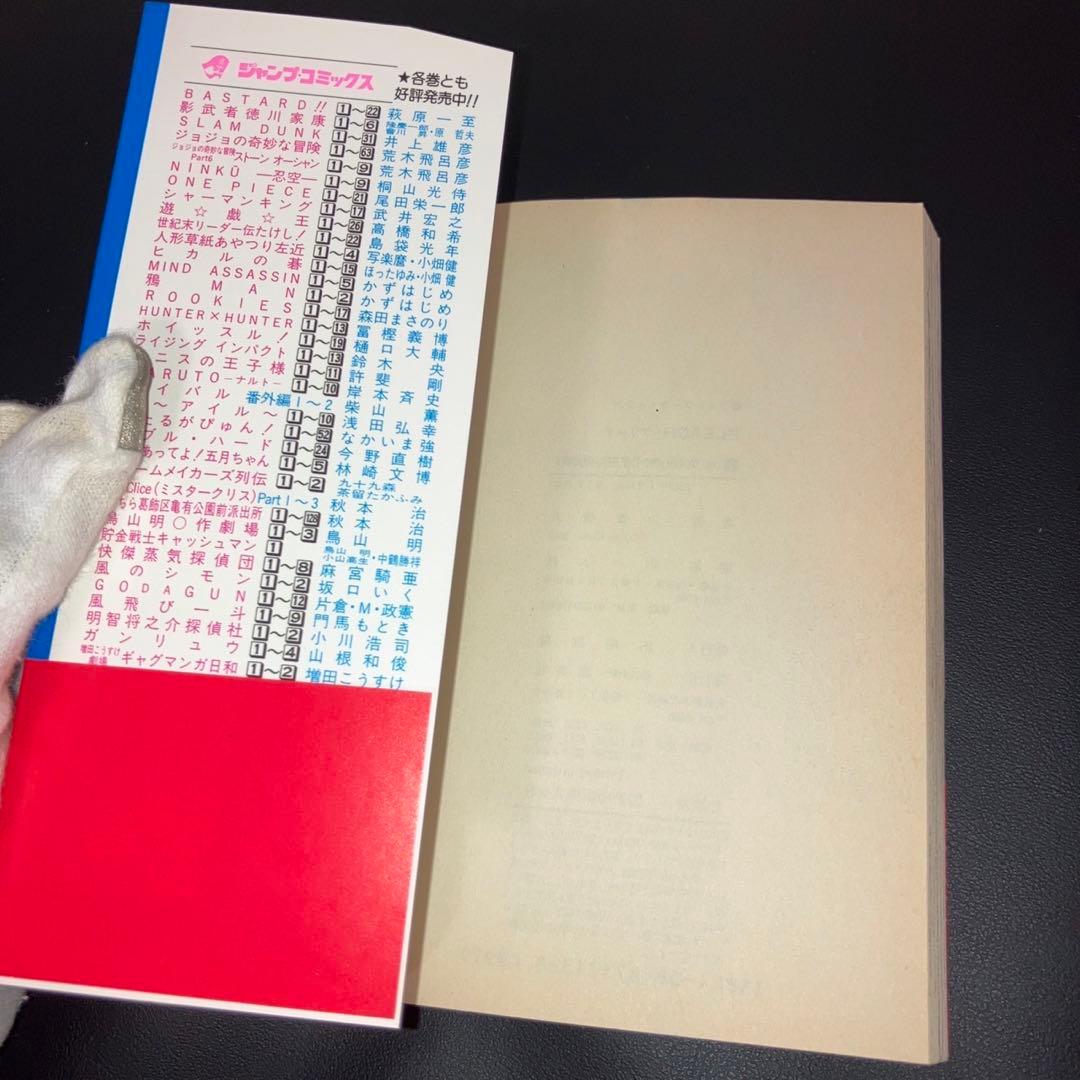 ジャンプ・コミックス
★各巻とも
好評発売中!!
BASTARD!! 1〜22 萩原一至
影武者徳川家康 1〜6 隆慶一郎・原 哲夫
SLAM DUNK 1〜31 井上雄彦
ジョジョの奇妙な冒険 1〜63 荒木飛呂彦
ジョジョの奇妙な冒険 Part6 ストーン オーシャン 1〜9 荒木飛呂彦
NINKŪ —忍空— 1〜9 桐山光侍
ONE PIECE 1〜21 尾田栄一郎
シャーマンキング 1〜17 武井宏之
遊☆戯☆王 1〜26 高橋和希
世紀末リーダー伝たけし! 1〜22 島袋光年
人形草紙あやつり左近 1〜4 写楽麿・小畑健
ヒカルの碁 1〜15 ほったゆみ・小畑健
MIND ASSASSIN 1〜5 かずはじめ
鴉MAN 1〜2 かずはじめ
ROOKIES 1〜17 森田まさのり
HUNTER×HUNTER 1〜13 冨樫義博
ホイッスル! 1〜19 樋口大輔
ライジング インパクト 1〜13 鈴木央
ニスの王子様 1〜11 許斐剛
ARUTO—ナルト— 1〜10 岸本斉史
イバル 番外編1〜2 柴山薫
〜アイル〜 1〜10 浅田弘幸
るがぴゅん! 1〜52 なかいま強
ブル・ハード 1〜24 今野直樹
あってよ!五月ちゃん 1〜5 林崎文博
ームメイカーズ列伝 1〜2 九十九森 茶留たかふみ
Clice(ミスタークリス) Part1〜3 秋本治
ちら葛飾区亀有公園前派出所 1〜128 秋本治
鳥山明〇作劇場 1〜3 鳥山明
貯金戦士キャッシュマン 1 鳥山 明 小山高生・中鶴勝祥
快傑蒸気探偵団 1〜8 麻宮騎亜
風のシモン 1〜2 坂口いく
GODAGUN 1〜12 片倉・M・政憲
風飛び一斗 1〜9 門馬もとき
明智将之介探偵社 1〜2 小川浩司
ガンリュウ 1〜4 山根和俊
増田こうすけ劇場 ギャグマンガ日和 1〜2 増田こうすけ